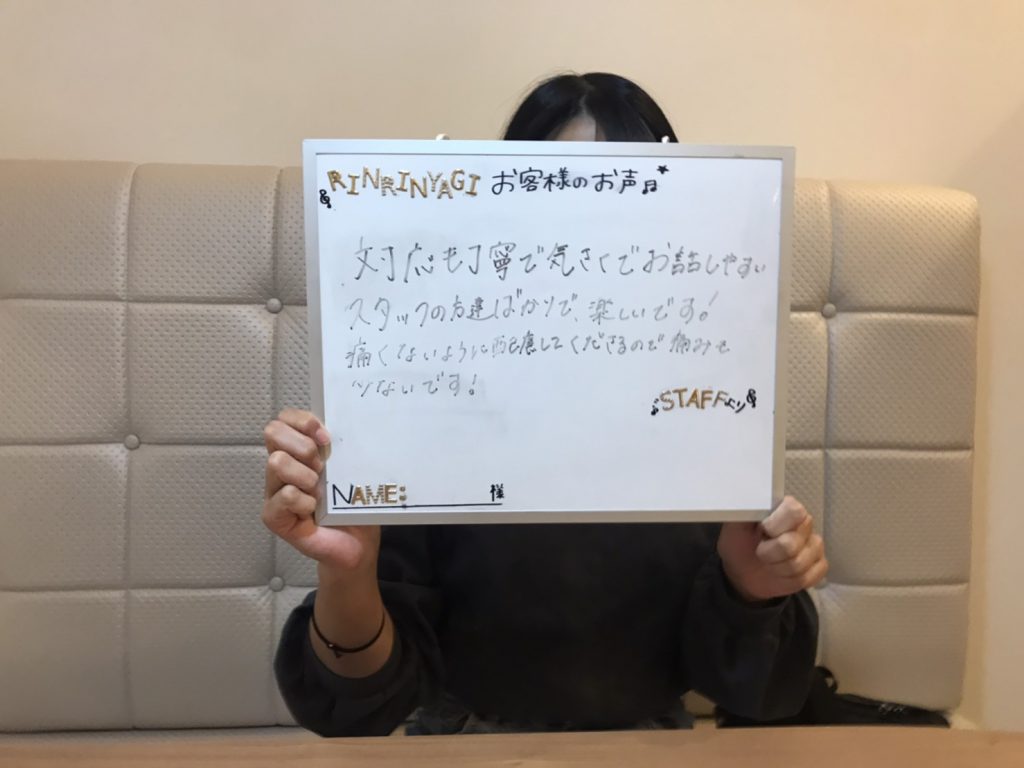 RINRINYAGI お客様のお声♬
対応も丁寧で気さくでお話しやすい
スタッフの方達ばかりで、楽しいです!
痛くないように配慮してくださるので痛みも
少ないです!
STAFFより
NAME: 様